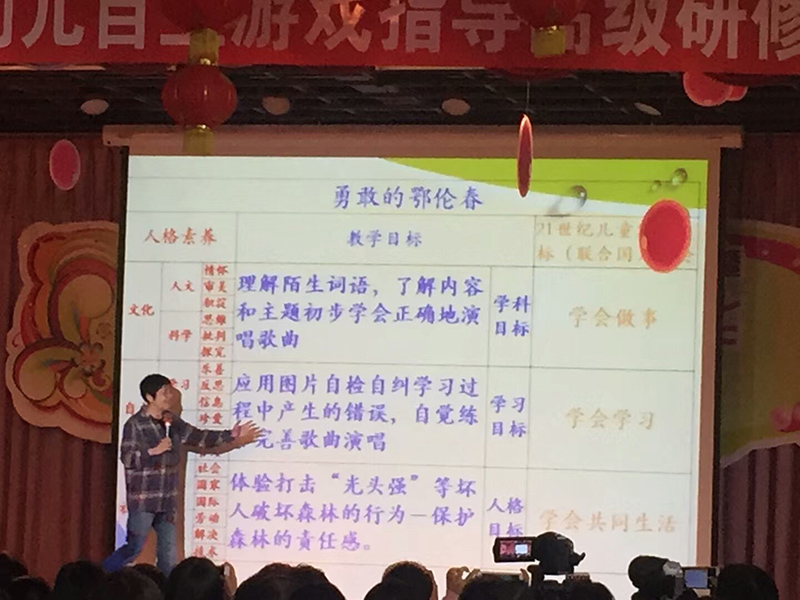 游戏指导高级研修
勇敢的鄂伦春
人格素养
教学目标
21世纪儿童
标（联合国
文化
人文
情怀
审美
积淀
理解陌生词语，了解内容
和主题初步学会正确地演
唱歌曲
学科
目标
学会做事
科学
思维
批判
探究
学习
乐善
反思
信息
珍爱
应用图片自检自纠学习过
程中产生的错误，自觉练
完善歌曲演唱
学习
目标
学会学习
自
社会
国家
国际
劳动
解决
技术
体验打击“光头强”等坏
人破坏森林的行为—保护
森林的责任感。
人格
目标
学会共同生活